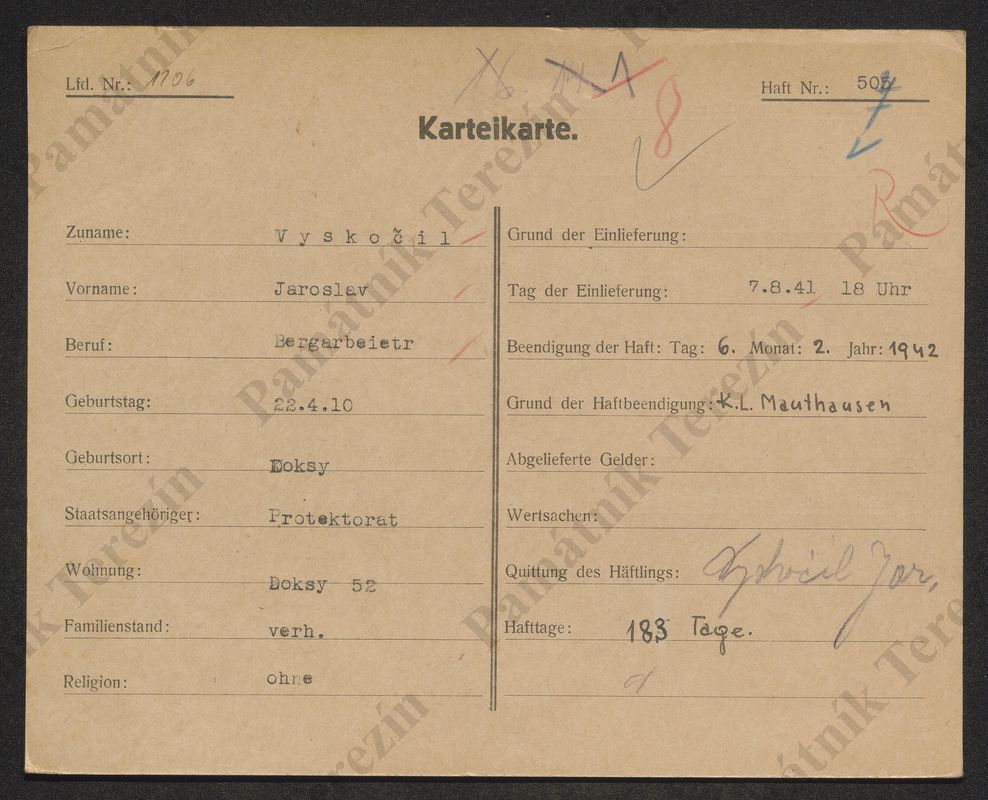 Lfd. Nr.: 1706
Haft Nr.: 505
Karteikarte.
8
R
Zuname: Vyskočil
Vorname: Jaroslav
Beruf: Bergarbeietr
Geburtstag: 22.4.10
Geburtsort: Doksy
Staatsangehöriger: Protektorat
Wohnung: Doksy 52
Familienstand: verh.
Religion: ohne
Grund der Einlieferung:
Tag der Einlieferung: 7.8.41 18 Uhr
Beendigung der Haft: Tag: 6. Monat: 2. Jahr: 1942
Grund der Haftbeendigung: K.L. Mauthausen
Abgelieferte Gelder:
Wertsachen:
Quittung des Häftlings: Vyskočil Jar.
Hafttage: 183 Tage.
Památník Terezín